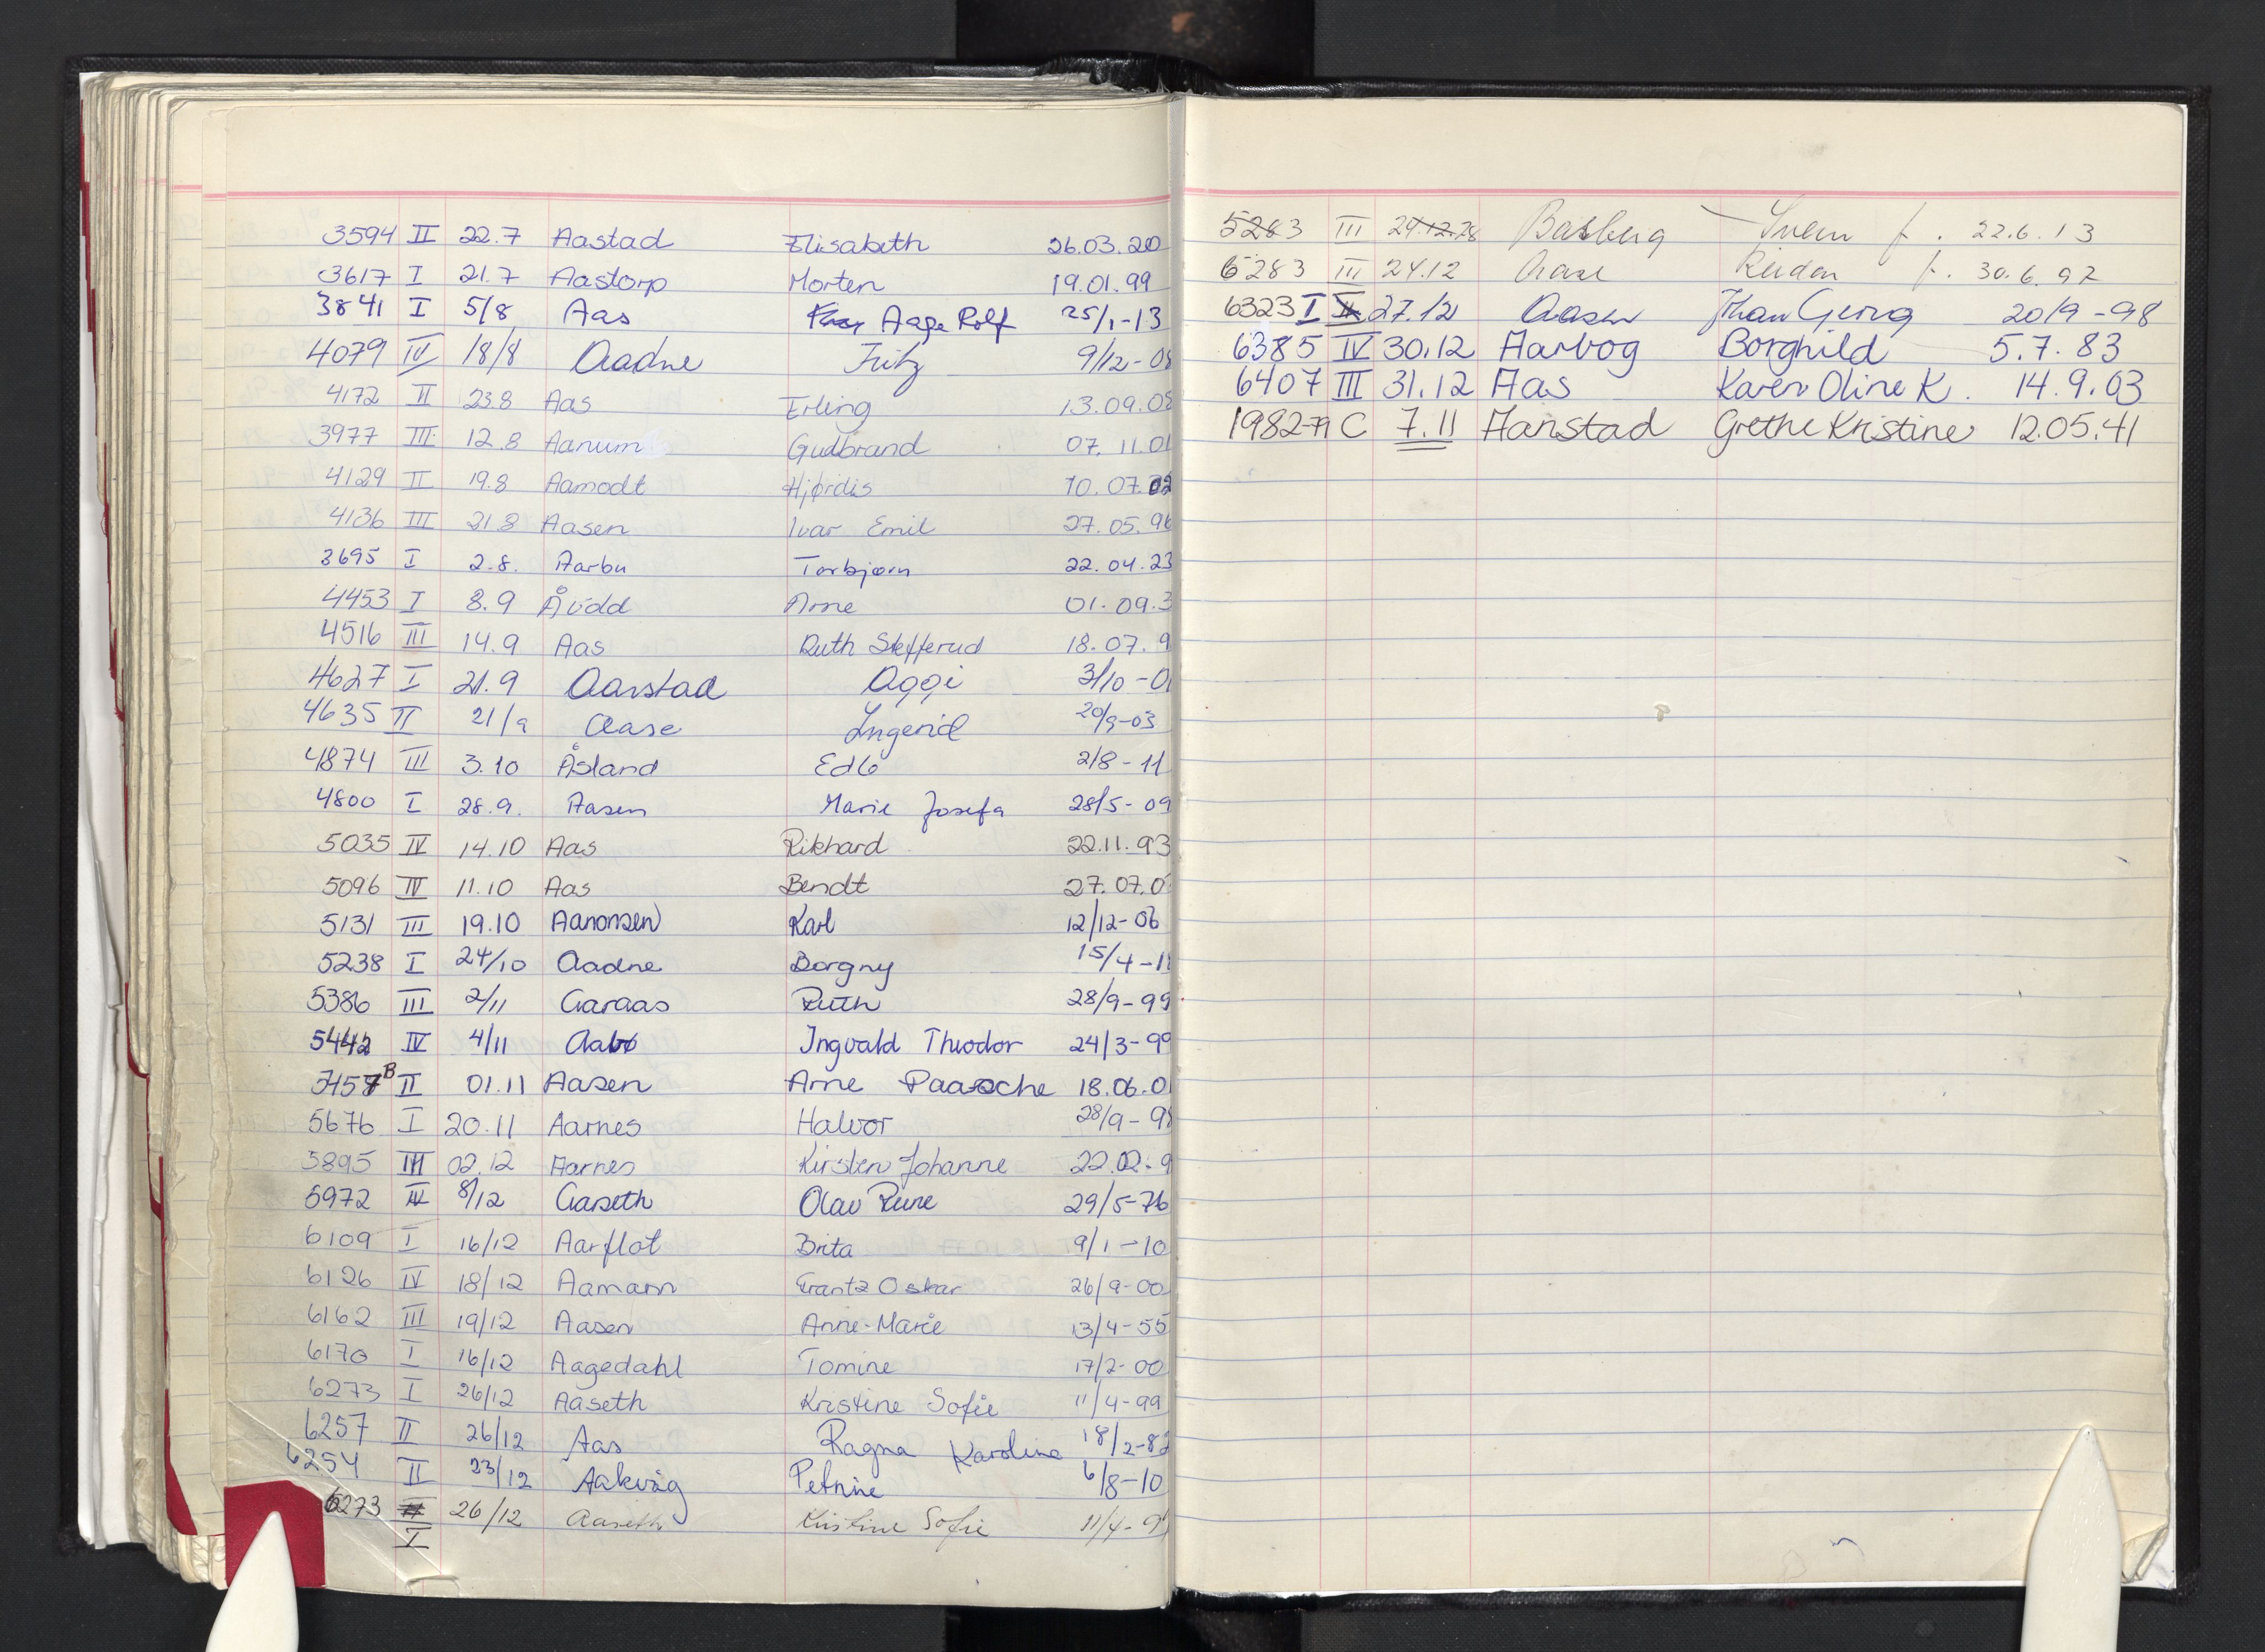 3594 II 22.7 Aastad Elisabeth 26.03.20
3617 I 21.7 Aastorp Morten 19.01.99
3841 I 5/8 Aas Aage Rolf 25/1-13
4079 IV 18/8 Aadne Fritz 9/12-08
4172 II 23.8 Aas Erling 13.09.08
3977 III 12.8 Aanum Gudbrand 07.11.01
4129 II 19.8 Aamodt Hjørdis 10.07.02
4136 III 21.8 Aasen Ivar Emil 27.05.96
3695 I 2.8. Aarbu Torbjørn 22.04.23
4453 I 8.9 Århodd Arne 01.09.3
4516 III 14.9 Aas Ruth Stefferud 18.07.9
4627 I 21.9 Aarstad Aggi 3/10-0
4635 II 21/9 Aase Ingerid 20/9-03
4874 III 3.10 Åsland Edle 2/8-11
4800 I 28.9. Aasen Marie Josefa 28/5-09
5035 IV 14.10 Aas Rikhard 22.11.93
5096 IV 11.10 Aas Bendt 27.07.0
5131 III 19.10 Aaronsen Karl 12/12-06
5238 I 24/10 Aadne Borgny 15/4-1
5386 III 2/11 Aaraas Ruth 28/9-99
5442 IV 4/11 Aabø Ingvald Theodor 24/3-99
B II 01.11 Aasen Arne Paasche 18.06.0
5676 I 20.11 Aarnes Halvor 28/9-98
5895 III 02.12 Aarnes Kirsten Johanne 22.02.9
5972 IV 8/12 Aaseth Olav Rune 29/5-76
6109 I 16/12 Aarflot Brita 9/1-10
6126 IV 18/12 Aamann Frantz Oskar 26/9-00
6162 III 19/12 Aasen Anne-Marie 13/4-55
6170 I 16/12 Aagedahl Tomine 17/2-00
6273 I 26/12 Aaseth Kristine Sofie 11/4-99
6257 II 26/12 Aas Ragna Karoline 18/2-82
6254 II 23/12 Aakvåg Petrine 6/8-10
6273 II I 26/12 Aaseth Kristine Sofie 11/4-9
5283 III 29.12.78 Basberg Svein f. 22.6.13
6283 III 24.12 Aase Reidar f. 30.6.97
6323 I II 27.12 Aasen Johan Georg 20/9-98
6385 IV 30.12 Aarvog Borghild 5.7.83
6407 III 31.12 Aas Karen Oline K. 14.9.03
1982-79 C 7.11 Aanstad Grethe Kristine 12.05.41